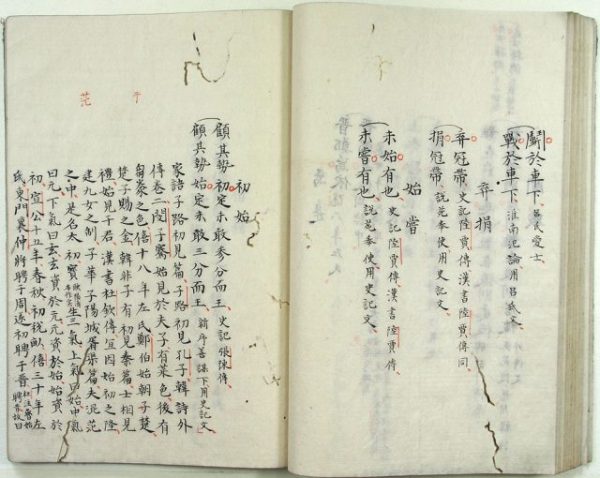 鬭於車下 呂氏愛士
戰於車下 淮南氾論用呂氏文
弃捐
弃冠帶 史記陸賈傳漢書陸賈傳同
捐冠帶 說苑奉使用史記文
始嘗
未始有也 史記陸賈傳漢書陸賈傳
未嘗有也 說苑奉使用史記文
初始
顧其勢初定未敢參分而王 史記張陳傳
顧其勢始定未敢三分而王 新序善謀下用史記文
家語子路初見篇子路初見孔子韓詩外
傳卷二閔子騫始見於夫子有菜色後有
芻豢之色僖十八年左氏鄭伯始朝于楚
于
楚子賜之金韓非子有初見秦篇士相見
禮始見于君漢書杜欽傳宜因始初之隆
建九女之制子華子陽城胥渠篇夫混茫
茫
之中是名太初實生三氣上氣曰始中氣
曰元下氣曰玄玄資於元元資於始始資於
初宣公十五年春秋初稅畝僖三十年左
氏東門襄仲將聘于周遂初聘于晉